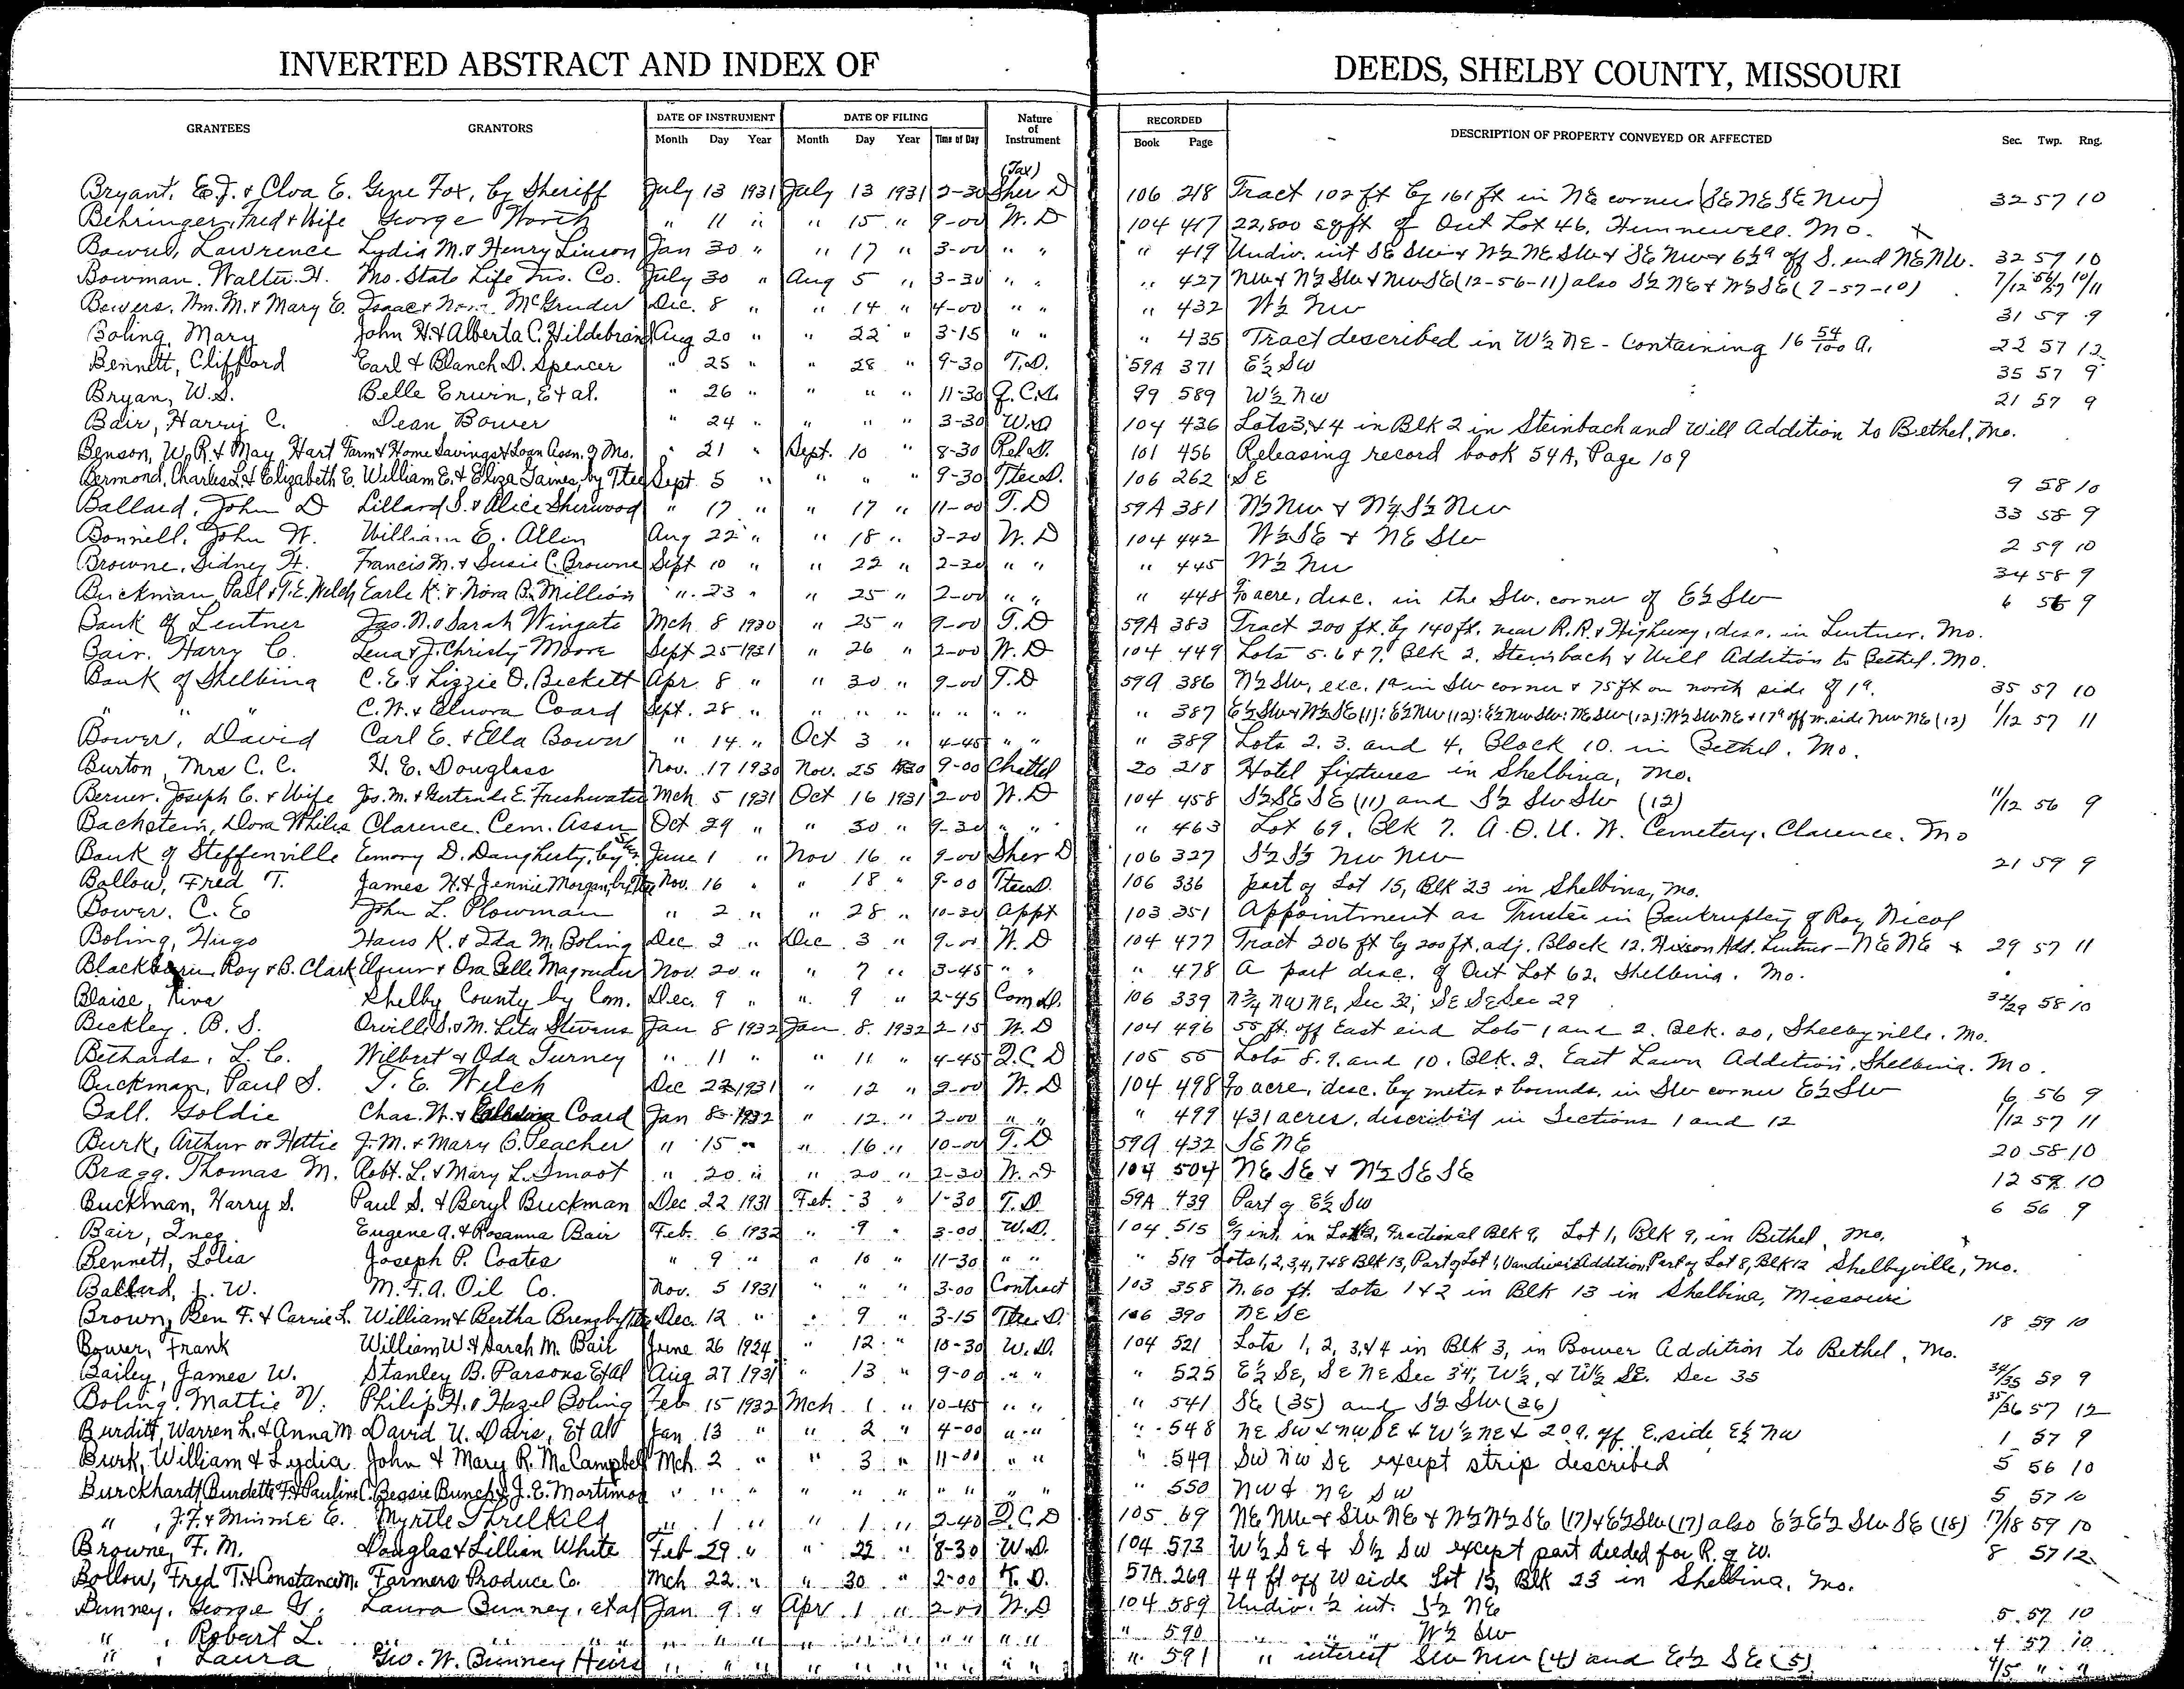 INVERTED ABSTRACT AND INDEX OF DEEDS, SHELBY COUNTY, MISSOURI
GRANTEES GRANTORS DATE OF INSTRUMENT DATE OF FILING Nature of Instrument RECORDED DESCRIPTION OF PROPERTY CONVEYED OR AFFECTED Sec. Twp. Rng.
Month Day Year Month Day Year Time of Day Book Page
(Tax)
Bryant, E.J. & Clva E. Gene Fox, by Sheriff July 13 1931 July 13 1931 2-30 Sher D 106 218 Tract 102 ft by 161 ft in NE corner (SE NE SE NW) 32 57 10
Behringer, Fred & Wife George North " 11 " " 15 " 9-00 W.D 104 417 22,800 sq ft of Out Lot 46, Hunnewell. Mo. X
Lawrence Lydia M. & Henry Linson Jan 30 " " 17 " 3-00 " " " 419 Undiv. int SE SW & N½ NE SW & SE NW & 6½ a off S. end NE NW. 32 59 10
Bowman, Walter H. Mo. State Life Ins. Co. July 30 " Aug 5 " 3-30 " " " 427 NW & N½ SW & NW SE (12-56-11) also S½ NE & N½ SE (7-57-10) 7/12 56/57 10/11
Bowers, Wm. M. & Mary E. Isaac & McGruder Dec. 8 " " 14 " 4-00 " " " 432 W½ NW 31 59 9
Boling, Mary John H. & Alberta C. Hildebrand Aug 20 " " 22 " 3-15 " " " 435 Tract described in W½ NE - Containing 16 54/100 a. 22 57 12
Bennett, Clifford Earl & Blanch D. Spencer " 25 " " 28 " 9-30 T.D. 59A 371 E½ SW 35 57 9
Bryan, W.S. Belle Erwin, Et al. " 26 " " " " 11-30 Q.C.D. 99 589 W½ NW 21 57 9
Bair, Harry C. Dean Bower " 24 " " " " 3-30 W.D 104 436 Lots 3, & 4 in Blk 2 in Steinbach and Will Addition to Bethel, Mo.
Benson, W.R. & May Hart Farm & Home Savings & Loan Assn. of Mo. " 21 " Sept. 10 " 8-30 Rel D. 101 456 Releasing record book 54A, Page 109
Bermond, Charles L. & Elizabeth E. William E. & Eliza Gaines, by Ttee Sept 5 " " " " 9-30 Ttee D. 106 262 SE 9 58 10
Ballard, John D Lillard S. & Alice Sherwood " 17 " " 17 " 11-00 T.D 59A 381 N½ NW & N¼ S½ NW 33 58 9
Bonnell, John W. William E. Allen Aug 22 " " 18 " 3-20 W.D 104 442 W½ SE & NE SW 2 59 10
Browne, Sidney H. Francis M. & Susie C. Browne Sept 10 " " 22 " 2-30 " " " 445 W½ NW 34 58 9
Buckman, Paul & T.E. Welch Earle K. & Nora B. Million " 23 " " 25 " 2-00 " " " 448 acre, desc. in the SW. corner of E½ SW 6 56 9
Bank of Lentner Jas. N. & Sarah Wingate Mch 8 1930 " 25 " 9-00 T.D 59A 383 Tract 200 ft. by 140 ft. near R.R. & Highway, desc. in Lentner. Mo.
Bair, Harry C. Lena & J. Christy Moore Sept 25 1931 " 26 " 2-00 W.D 104 449 Lots 5. 6 & 7. Blk 2. Steinbach & Will Addition to Bethel. Mo.
Bank of Shelbina C. E. & Lizzie D. Beckett Apr. 8 " " 30 " 9-00 T.D 59A 386 N½ SW, exc. 1a in SW corner & 75 ft on north side of 1a. 35 57 10
" " " C. W. & Elnora Coard Sept. 28 " " " " " " " " " 387 E½ SW & W½ SE (11): E½ NW (12): E½ NW SW: NE SW (12): W½ SW NE & 17a off w. side NW NE (12) 1/12 57 11
Bower, David Carl E. & Ella Bower " 14 " Oct 3 " 4-45 " " " 389 Lots 2. 3. and 4, Block 10. in Bethel. Mo.
Burton, Mrs C. C. H. E. Douglass Nov. 17 1930 Nov. 25 1930 9-00 Chattel 20 218 Hotel fixtures in Shelbina, Mo.
Berver, Joseph C. & Wife Jos. M. & Gertrude E. Freshwater Mch 5 1931 Oct 16 1931 2-00 W.D 104 458 S½ SE SE (11) and S½ SW SW (12) 11/12 56 9
Bachstein, Dora Whiles Clarence. Cem. Assn Oct 29 " " 30 " 9-30 " " " 463 Lot 69, Blk 7. A.O.U.W. Cemetery, Clarence. Mo
Bank of Steffenville Emory D. Daugherty, by Sher June 1 " Nov 16 " 9-00 Sher D 106 327 S½ S½ NW NW 21 59 9
Ballow, Fred T. James H. & Jennie Morgan, by Ttee Nov. 16 " " 18 " 9-00 Ttee D. 106 336 part of Lot 15, Blk 23 in Shelbina, Mo.
Bower, C. E John L. Plowman " 2 " " 28 " 10-30 Appt 103 351 Appointment as Trustee in Bankruptcy of Roy Nicol
Boling, Hugo Hans K. & Ida M. Boling Dec 2 " Dec. 3 " 9-00 W.D 104 477 Tract 206 ft by 200 ft. adj. Block 12. Hixson Add. Lentner - NE NE & 29 57 11
Roy & B. Clark Elmer & Ora Belle Magruder Nov. 20 " " 7 " 3-45 " " " 478 A part desc. of Out Lot 62. Shelbina. Mo.
Blaise, Riva Shelby County by Com. Dec. 9 " " 9 " 2-45 Com D. 106 339 N¾ NW NE, Sec 32; SE SE Sec 29 32/29 58 10
Bickley. B. S. Orville S. & M. Lita Stivens Jan 8 1932 Jan 8. 1932 2-15 W.D 104 496 55 ft. off East end Lots 1 and 2. Blk. 20, Shelbyville. Mo.
Bethards, L. C. Wilbert & Oda Turney " 11 " " 11 " 4-45 Q.C.D 105 55 Lots 8. 9. and 10. Blk. 2. East Lawn Addition, Shelbina. Mo.
Buckman, Paul S. T. E. Welch Dec 22 1931 " 12 " 9-00 W.D 104 498 acre, desc. by metes & bounds, in SW corner E½ SW 6 56 9
Ball. Goldie Chas. W. & Coard Jan 8 1932 " 12 " 2-00 " " " 499 431 acres, described in Sections 1 and 12 1/12 57 11
Burk, Arthur or Hettie J. M. & Mary B. Peacher " 15 " " 16 " 10-00 T.D 59A 432 SE NE 20 58 10
Bragg. Thomas M. Robt. L. & Mary L. Smoot " 20 " " 20 " 2-30 W.D 104 504 NE SE & N½ SE SE 12 59 10
Buckman, Harry S. Paul S. & Beryl Buckman Dec 22 1931 Feb. 3 " 1-30 T.D. 59A 439 Part of E½ SW 6 56 9
Bair, Inez Eugene A. & Rosanna Bair Feb. 6 1932 " 9 " 3-00 W.D. 104 515 int. in Lot 2, Fractional Blk 9, Lot 1, Blk 9, in Bethel, Mo.
Bennett, Lolia Joseph P. Coates " 9 " " 10 " 11-30 " " " 519 Lots 1, 2, 3, 4, 7 & 8 Blk 13, Part of Lot 1, Vandiver's Addition, Part of Lot 8, Blk 12 Shelbyville, Mo.
Ballard, L. W. M.F.A. Oil Co. Nov. 5 1931 " " " 3-00 Contract 103 358 N. 60 ft. Lots 1 & 2 in Blk 13 in Shelbina, Missouri
Brown, Ben F. & Carrie L. William & Bertha Breng by Ttee Dec. 12 " " 9 " 3-15 Ttee D. 106 390 NE SE 18 59 10
Bower, Frank William W. & Sarah M. Bair June 26 1924 " 12 " 10-30 W.D. 104 521 Lots 1, 2, 3, & 4 in Blk 3, in Bower Addition to Bethel, Mo.
Bailey, James W. Stanley B. Parsons Et al Aug 27 1931 " 13 " 9-00 " " " 525 E½ SE, SE NE Sec 34, W½, & W½ SE. Sec 35 34/35 59 9
Boling. Mattie V. Philip H. & Hazel Boling Feb 15 1932 Mch 1 " 10-45 " " " 541 SE (35) and S½ SW (36) 35/36 57 12
Burditt, Warren L. & Anna M David U. Davis, Et al Jan 13 " " 2 " 4-00 " " " 548 NE SW & NW SE & W½ NE & 20 a. off E. side E½ NW 1 57 9
Burk, William & Lydia John & Mary R. McCampbell Mch. 2 " " 3 " 11-00 " " " 549 SW NW SE except strip described 5 56 10
Burckhardt, Burdette F. & Pauline C. Bessie Bunch & J. E. Mortimor " " " " " " " " " " " 550 NW & NE SW 5 57 10
" , J.F. & Minnie E. Myrtle Threlkeld " 1 " " 1 " 2-40 Q.C.D 105 69 NE NW & SW NE & N½ N½ SE (17) & E½ SW (17) also E½ E½ SW SE (18) 17/18 59 10
Browne, F. M. Douglas & Lillian White Feb 29 " " 22 " 8-30 W.D. 104 573 W½ SE & S½ SW except part deeded for R. of W. 8 57 12
Bollow, Fred T. & Constance M. Farmers Produce Co. Mch 22 " " 30 " 2-00 T.D. 57A 269 44 ft off W side Lot 15, Blk 23 in Shelbina, Mo.
Bunney, George G. Laura Bunney, et al Jan 9 " Apr 1 " 2-00 W.D 104 589 Undiv. ½ int. S½ NE 5 57 10
" , Robert L. " " " " " " " " " " " " " 590 " " " W½ SW 4 57 10
" , Laura Geo. W. Bunney Heirs " " " " " " " " " " " 591 " interest SW NW (4) and E½ SE (5) 4/5 " "